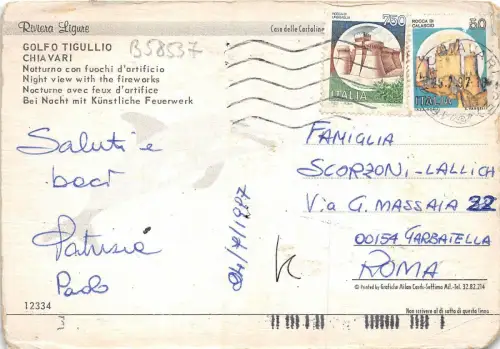 Riviera Ligure
Casa delle Cartoline
GOLFO TIGULLIO
CHIAVARI
Notturno con fuochi d'artificio
Night view with the fireworks
Nocturne avec feux d'artifice
Bei Nacht mit Künstliche Feuerwerk
B58537
750
ITALIA
50
ROCCA DI
CALASCIO
ITALIA
Saluti e
baci
Patrizia
Paolo
04/7/1987
FAMIGLIA
SCORZONI-LALLICH
Via G. MASSAIA 22
00154 GARBATELLA
ROMA
K
© Printed by Grafiche Milan Cards-Settimo Mil.-Tel. 32.82.214
12334
Non scrivere al di sotto di questa linea